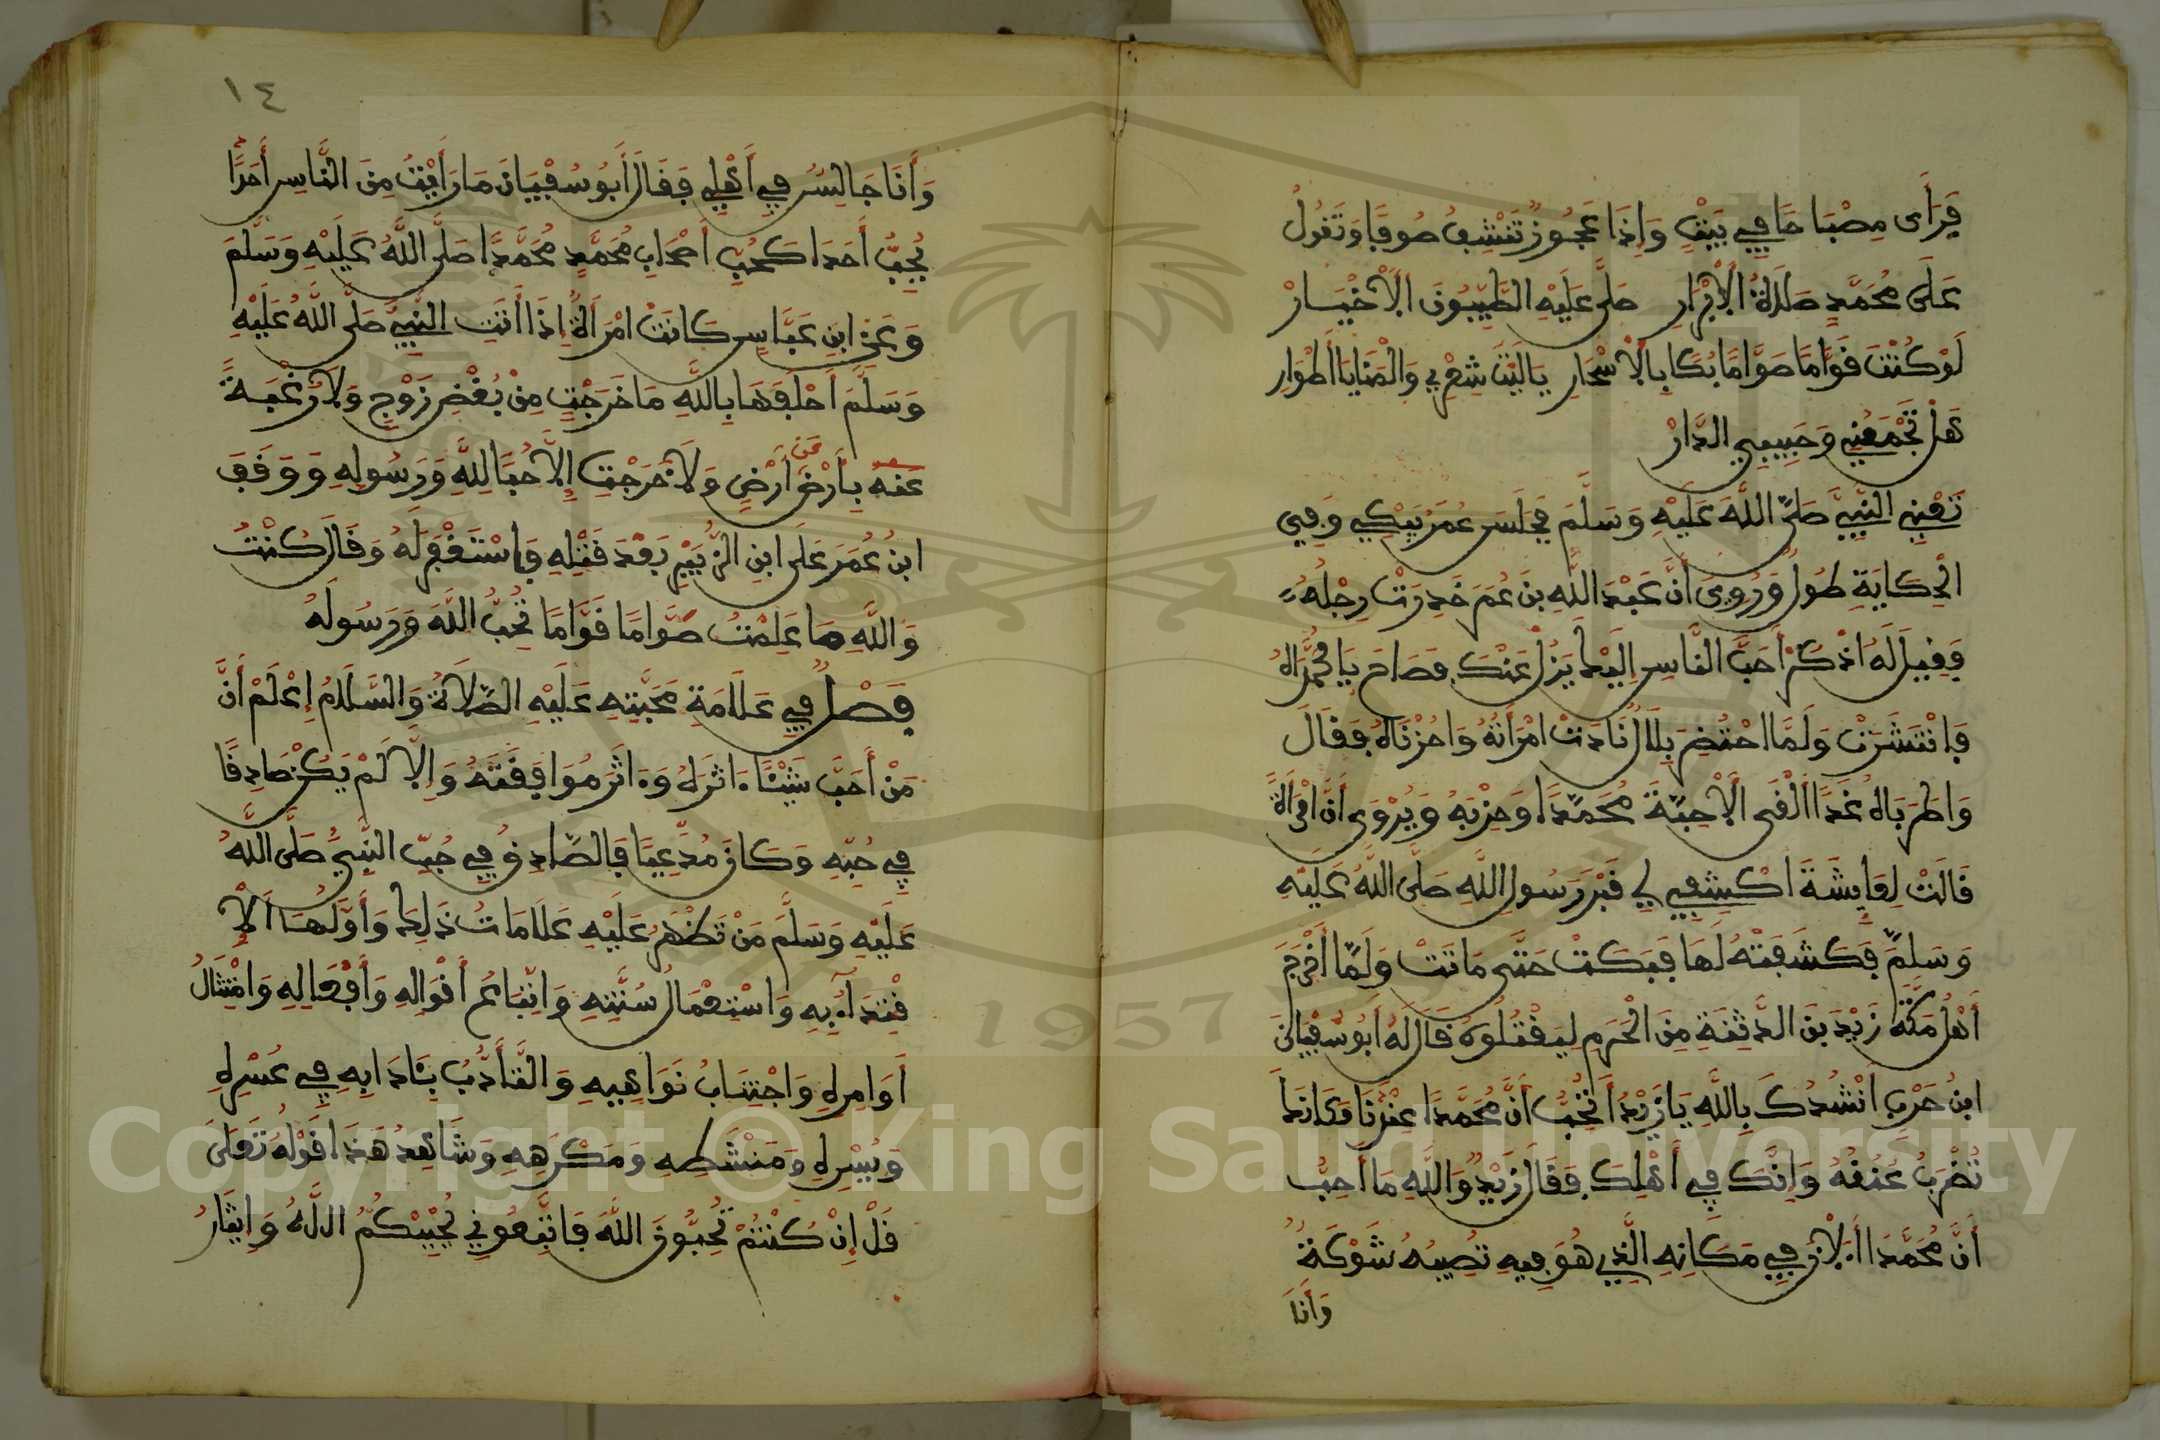 فَرَأَى مِصْبَاحًا فِي بَيْتٍ وَإِذَا عَجُوزٌ تَنْفُشُ صُوفًا وَتَقُولُ
عَلَى مُحَمَّدٍ صَلَاةُ الْأَبْرَارِ صَلَّى عَلَيْهِ الطَّيِّبُونَ الْأَخْيَارْ
لَوْ كُنْتَ قَوَّامًا صَوَّامًا بُكًا بِالْأَسْحَارِ يَا لَيْتَ شِعْرِي وَالْمَنَايَا أَطْوَارِ
هَلْ تَجْمَعُنِي وَحَبِيبِي الدَّارْ
تَعْنِي النَّبِيَّ صَلَّى اللَّهُ عَلَيْهِ وَسَلَّمَ فَجَلَسَ عُمَرُ يَبْكِي وَفِي
الْحِكَايَةِ طُولٌ وَرُوِيَ أَنَّ عَبْدَ اللَّهِ بْنَ عُمَرَ خَدِرَتْ رِجْلُهُ
فَقِيلَ لَهُ اذْكُرْ أَحَبَّ النَّاسِ إِلَيْكَ يَزُلْ عَنْكَ فَصَاحَ يَا مُحَمَّدَاهُ
فَانْتَشَرَتْ وَلَمَّا احْتُضِرَ بِلَالٌ نَادَتْ امْرَأَتُهُ وَاحُزْنَاهُ فَقَالَ
وَاطَرَبَاهُ غَدًا أَلْقَى الْأَحِبَّةَ مُحَمَّدًا وَحِزْبَهُ وَيُرْوَى أَنَّ امْرَأَةً
قَالَتْ لِعَايِشَةَ اكْشِفِي لِي قَبْرَ رَسُولِ اللَّهِ صَلَّى اللَّهُ عَلَيْهِ
وَسَلَّمَ فَكَشَفَتْهُ لَهَا فَبَكَتْ حَتَّى مَاتَتْ وَلَمَّا أَخْرَجَ
أَهْلُ مَكَّةَ زَيْدَ بْنَ الدَّثِنَةِ مِنَ الْحَرَمِ لِيَقْتُلُوهُ قَالَ لَهُ أَبُو سُفْيَانَ
ابْنُ حَرْبٍ أَنْشُدُكَ بِاللَّهِ يَا زَيْدُ أَتُحِبُّ أَنَّ مُحَمَّدًا عِنْدَنَا مَكَانَكَ
تُضْرَبُ عُنُقُهُ وَإِنَّكَ فِي أَهْلِكَ فَقَالَ زَيْدٌ وَاللَّهِ مَا أُحِبُّ
أَنَّ مُحَمَّدًا الْآنَ فِي مَكَانِهِ الَّذِي هُوَ فِيهِ تُصِيبُهُ شَوْكَةٌ
وَأَنَا
١٤
وَأَنَا جَالِسٌ فِي أَهْلِي فَقَالَ أَبُو سُفْيَانَ مَا رَأَيْتُ مِنَ النَّاسِ أَحَدًا
يُحِبُّ أَحَدًا كَحُبِّ أَصْحَابِ مُحَمَّدٍ مُحَمَّدًا صَلَّى اللَّهُ عَلَيْهِ وَسَلَّمَ
وَعَنِ ابْنِ عَبَّاسٍ كَانَتْ امْرَأَةٌ إِذَا أَتَتِ النَّبِيَّ صَلَّى اللَّهُ عَلَيْهِ
وَسَلَّمَ أَحْلَفَهَا بِاللَّهِ مَا خَرَجْتِ مِنْ بُغْضِ زَوْجٍ وَلَا رَغْبَةً
عَنْهُ بِأَرْضٍ عَنْ أَرْضٍ وَلَا خَرَجْتِ إِلَّا حُبًّا لِلَّهِ وَرَسُولِهِ وَوَقَفَ
ابْنُ عُمَرَ عَلَى ابْنِ الزُّبَيْرِ بَعْدَ قَتْلِهِ فَاسْتَغْفَرَ لَهُ وَقَالَ كُنْتَ
وَاللَّهِ مَا عَلِمْتُ صَوَّامًا قَوَّامًا تُحِبُّ اللَّهَ وَرَسُولَهُ
فَصْلٌ فِي عَلَامَةِ مَحَبَّتِهِ عَلَيْهِ الصَّلَاةُ وَالسَّلَامُ إِعْلَمْ أَنَّ
مَنْ أَحَبَّ شَيْئًا ءَاثَرَهُ وَءَاثَرَ مُوَافَقَتَهُ وَإِلَّا لَمْ يَكُنْ صَادِقًا
فِي حُبِّهِ وَكَانَ مُدَّعِيًا فَالصَّادِقُ فِي حُبِّ النَّبِيِّ صَلَّى اللَّهُ
عَلَيْهِ وَسَلَّمَ مَنْ تَظْهَرُ عَلَيْهِ عَلَامَاتُ ذَلِكَ وَأَوَّلُهَا الْاِ
قْتِدَآءُ بِهِ وَاسْتِعْمَالُ سُنَّتِهِ وَاتِّبَاعُ أَقْوَالِهِ وَأَفْعَالِهِ وَامْتِثَالُ
أَوَامِرِهِ وَاجْتِنَابُ نَوَاهِيهِ وَالتَّأَدُّبُ بِئَادَابِهِ فِي عُسْرِهِ
وَيُسْرِهِ وَمَنْشَطِهِ وَمَكْرَهِهِ وَشَاهِدُ هَذَا قَوْلُهُ تَعَلَى
قُلْ إِنْ كُنْتُمْ تُحِبُّونَ اللَّهَ فَاتَّبِعُونِي يُحْبِبْكُمُ اللَّهُ وَإِيثَارُ
1957
Copyright © King Saud University